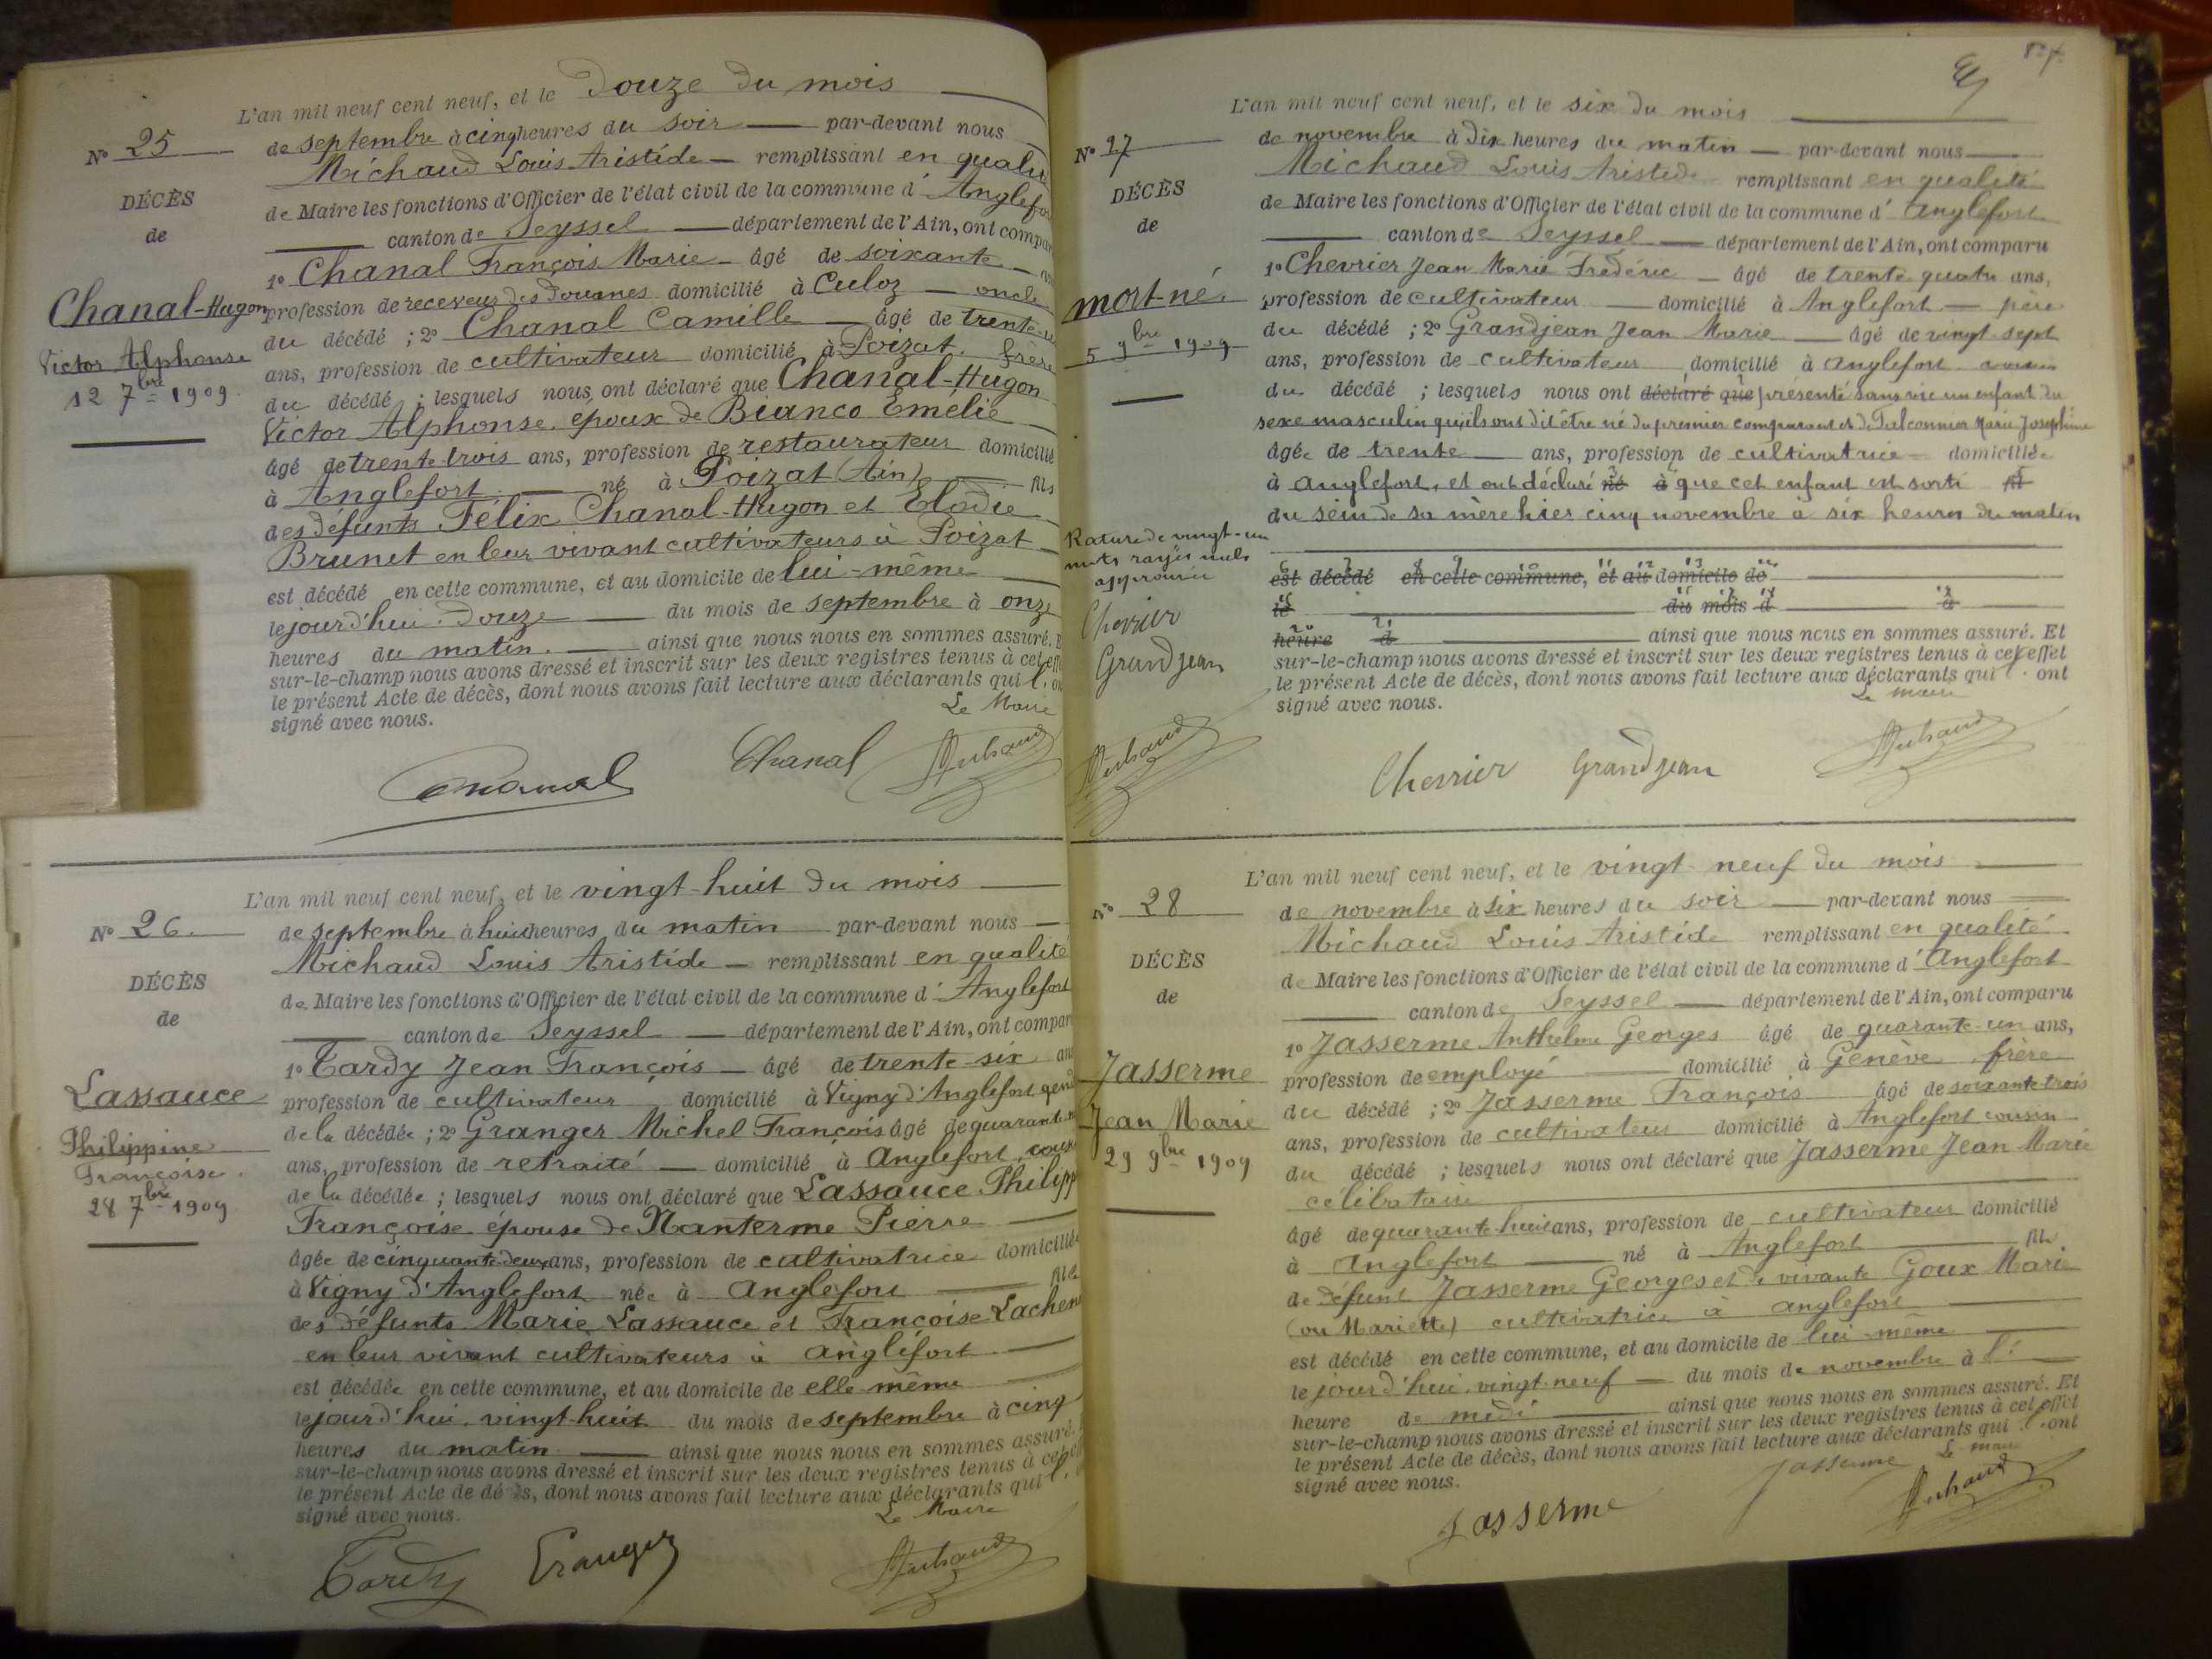 N° 25
DÉCÈS
de
Chanal-Hugon
Victor Alphonse
12 7bre 1909.
L'an mil neuf cent neuf, et le douze du mois
de septembre à cinq heures du soir — par-devant nous
Michaud Louis Aristide — remplissant en qualité
de Maire les fonctions d'Officier de l'état civil de la commune d'Anglefor
canton de Seyssel — département de l'Ain, ont compar
1° Chanal François Marie — âgé de soixante — an
profession de receveur des Douanes domicilié à Culoz — oncle
du décédé ; 2° Chanal Camille — âgé de trente
ans, profession de cultivateur domicilié à Poizat. frère
du décédé ; lesquels nous ont déclaré que Chanal-Hugon
Victor Alphonse, époux de Bianco Emélie
âgé de trente trois ans, profession de restaurateur domicilié
à Anglefort — né à Poizat (Ain) — fils
des défunts Félix Chanal-Hugon et Elodie
Brunet en leur vivant cultivateurs à Poizat
est décédé en cette commune, et au domicile de lui-même
le jourd'hui. Douze — du mois de septembre à onze
heures du matin. — ainsi que nous nous en sommes assuré. E
sur-le-champ nous avons dressé et inscrit sur les deux registres tenus à cet eff
le présent Acte de décès, dont nous avons fait lecture aux déclarants qui l' on
signé avec nous.
Le Maire
Chanal
Chanal
Michaud
N° 26.
DÉCÈS
de
Lassauce
Philippine
Françoise.
28 7bre 1909
L'an mil neuf cent neuf, et le vingt-huit du mois
de septembre à huit heures du matin par-devant nous
Michaud Louis Aristide — remplissant en qualité
de Maire les fonctions d'Officier de l'état civil de la commune d'Anglefort
canton de Seyssel — département de l'Ain, ont compar
1° Tardy Jean François — âgé de trente-six ans
profession de cultivateur domicilié à Vigny d'Anglefort gend
de la décédée ; 2° Granger Michel François âgé de quarante
ans, profession de retraité — domicilié à Anglefort, cous
de la décédée ; lesquels nous ont déclaré que Lassauce Philipp
Françoise épouse de Nanterme Pierre
âgée de cinquante-deux ans, profession de cultivatrice domiciliée
à Vigny d'Anglefort née à Anglefort — fille
des défunts Marie Lassauce et Françoise Lachen
en leur vivant cultivateurs à Anglefort
est décédée en cette commune, et au domicile de elle-même
le jourd'hui. vingt-huit du mois de septembre à cinq
heures du matin — ainsi que nous nous en sommes assuré.
sur-le-champ nous avons dressé et inscrit sur les deux registres tenus à cet
le présent Acte de décès, dont nous avons fait lecture aux déclarants qui l'
signé avec nous.
Le Maire
Tardy
Granger
Michaud
N° 27
DÉCÈS
de
mort-né.
5 9bre 1909
Rature de vingt-un
mots rayés nuls
approuvée
Chevrier
Grandjean
Michaud
L'an mil neuf cent neuf, et le six du mois
de novembre à dix heures du matin — par-devant nous
Michaud Louis Aristide remplissant en qualité
de Maire les fonctions d'Officier de l'état civil de la commune d'Anglefort
canton de Seyssel — département de l'Ain, ont comparu
1° Chevrier Jean Marie Frédéric — âgé de trente quatre ans,
profession de cultivateur — domicilié à Anglefort — père
du décédé ; 2° Grandjean Jean Marie — âgé de vingt-sept
ans, profession de cultivateur domicilié à Anglefort cousin
du décédé ; lesquels nous ont déclaré que présenté sans vie un enfant du
sexe masculin qu'ils ont dit être né du premier comparant et de Falconnier Marie Joséphine
âgée de trente — ans, profession de cultivatrice — domiciliée
à Anglefort, et ont déclaré né à que cet enfant est sorti fil
du sein de sa mère hier cinq novembre à six heures du matin
est décédé en cette commune, et au domicile de
le — du mois d — à
heure d — ainsi que nous nous en sommes assuré. Et
sur-le-champ nous avons dressé et inscrit sur les deux registres tenus à cet effet
le présent Acte de décès, dont nous avons fait lecture aux déclarants qui l'ont
signé avec nous.
Le maire
Chevrier
Grandjean
Michaud
N° 28
DÉCÈS
de
Jasserme
Jean Marie
29 9bre 1909
L'an mil neuf cent neuf, et le vingt-neuf du mois
de novembre à six heures du soir — par-devant nous
Michaud Louis Aristide remplissant en qualité
de Maire les fonctions d'Officier de l'état civil de la commune d'Anglefort
canton de Seyssel — département de l'Ain, ont comparu
1° Jasserme Anthelme Georges âgé de quarante-un ans,
profession de employé — domicilié à Genève frère
du décédé ; 2° Jasserme François âgé de soixante trois
ans, profession de cultivateur domicilié à Anglefort cousin
du décédé ; lesquels nous ont déclaré que Jasserme Jean Marie
célibataire
âgé de quarante huit ans, profession de cultivateur domicilié
à Anglefort — né à Anglefort — fils
de défunt Jasserme Georges et de vivante Goux Marie
(ou Mariette) cultivatrice à Anglefort
est décédé en cette commune, et au domicile de lui-même
le jourd'hui. vingt-neuf — du mois de novembre à l'
heure de midi — ainsi que nous nous en sommes assuré. Et
sur-le-champ nous avons dressé et inscrit sur les deux registres tenus à cet effet
le présent Acte de décès, dont nous avons fait lecture aux déclarants qui l'ont
signé avec nous.
Le maire
Jasserme
Jasserme
Michaud